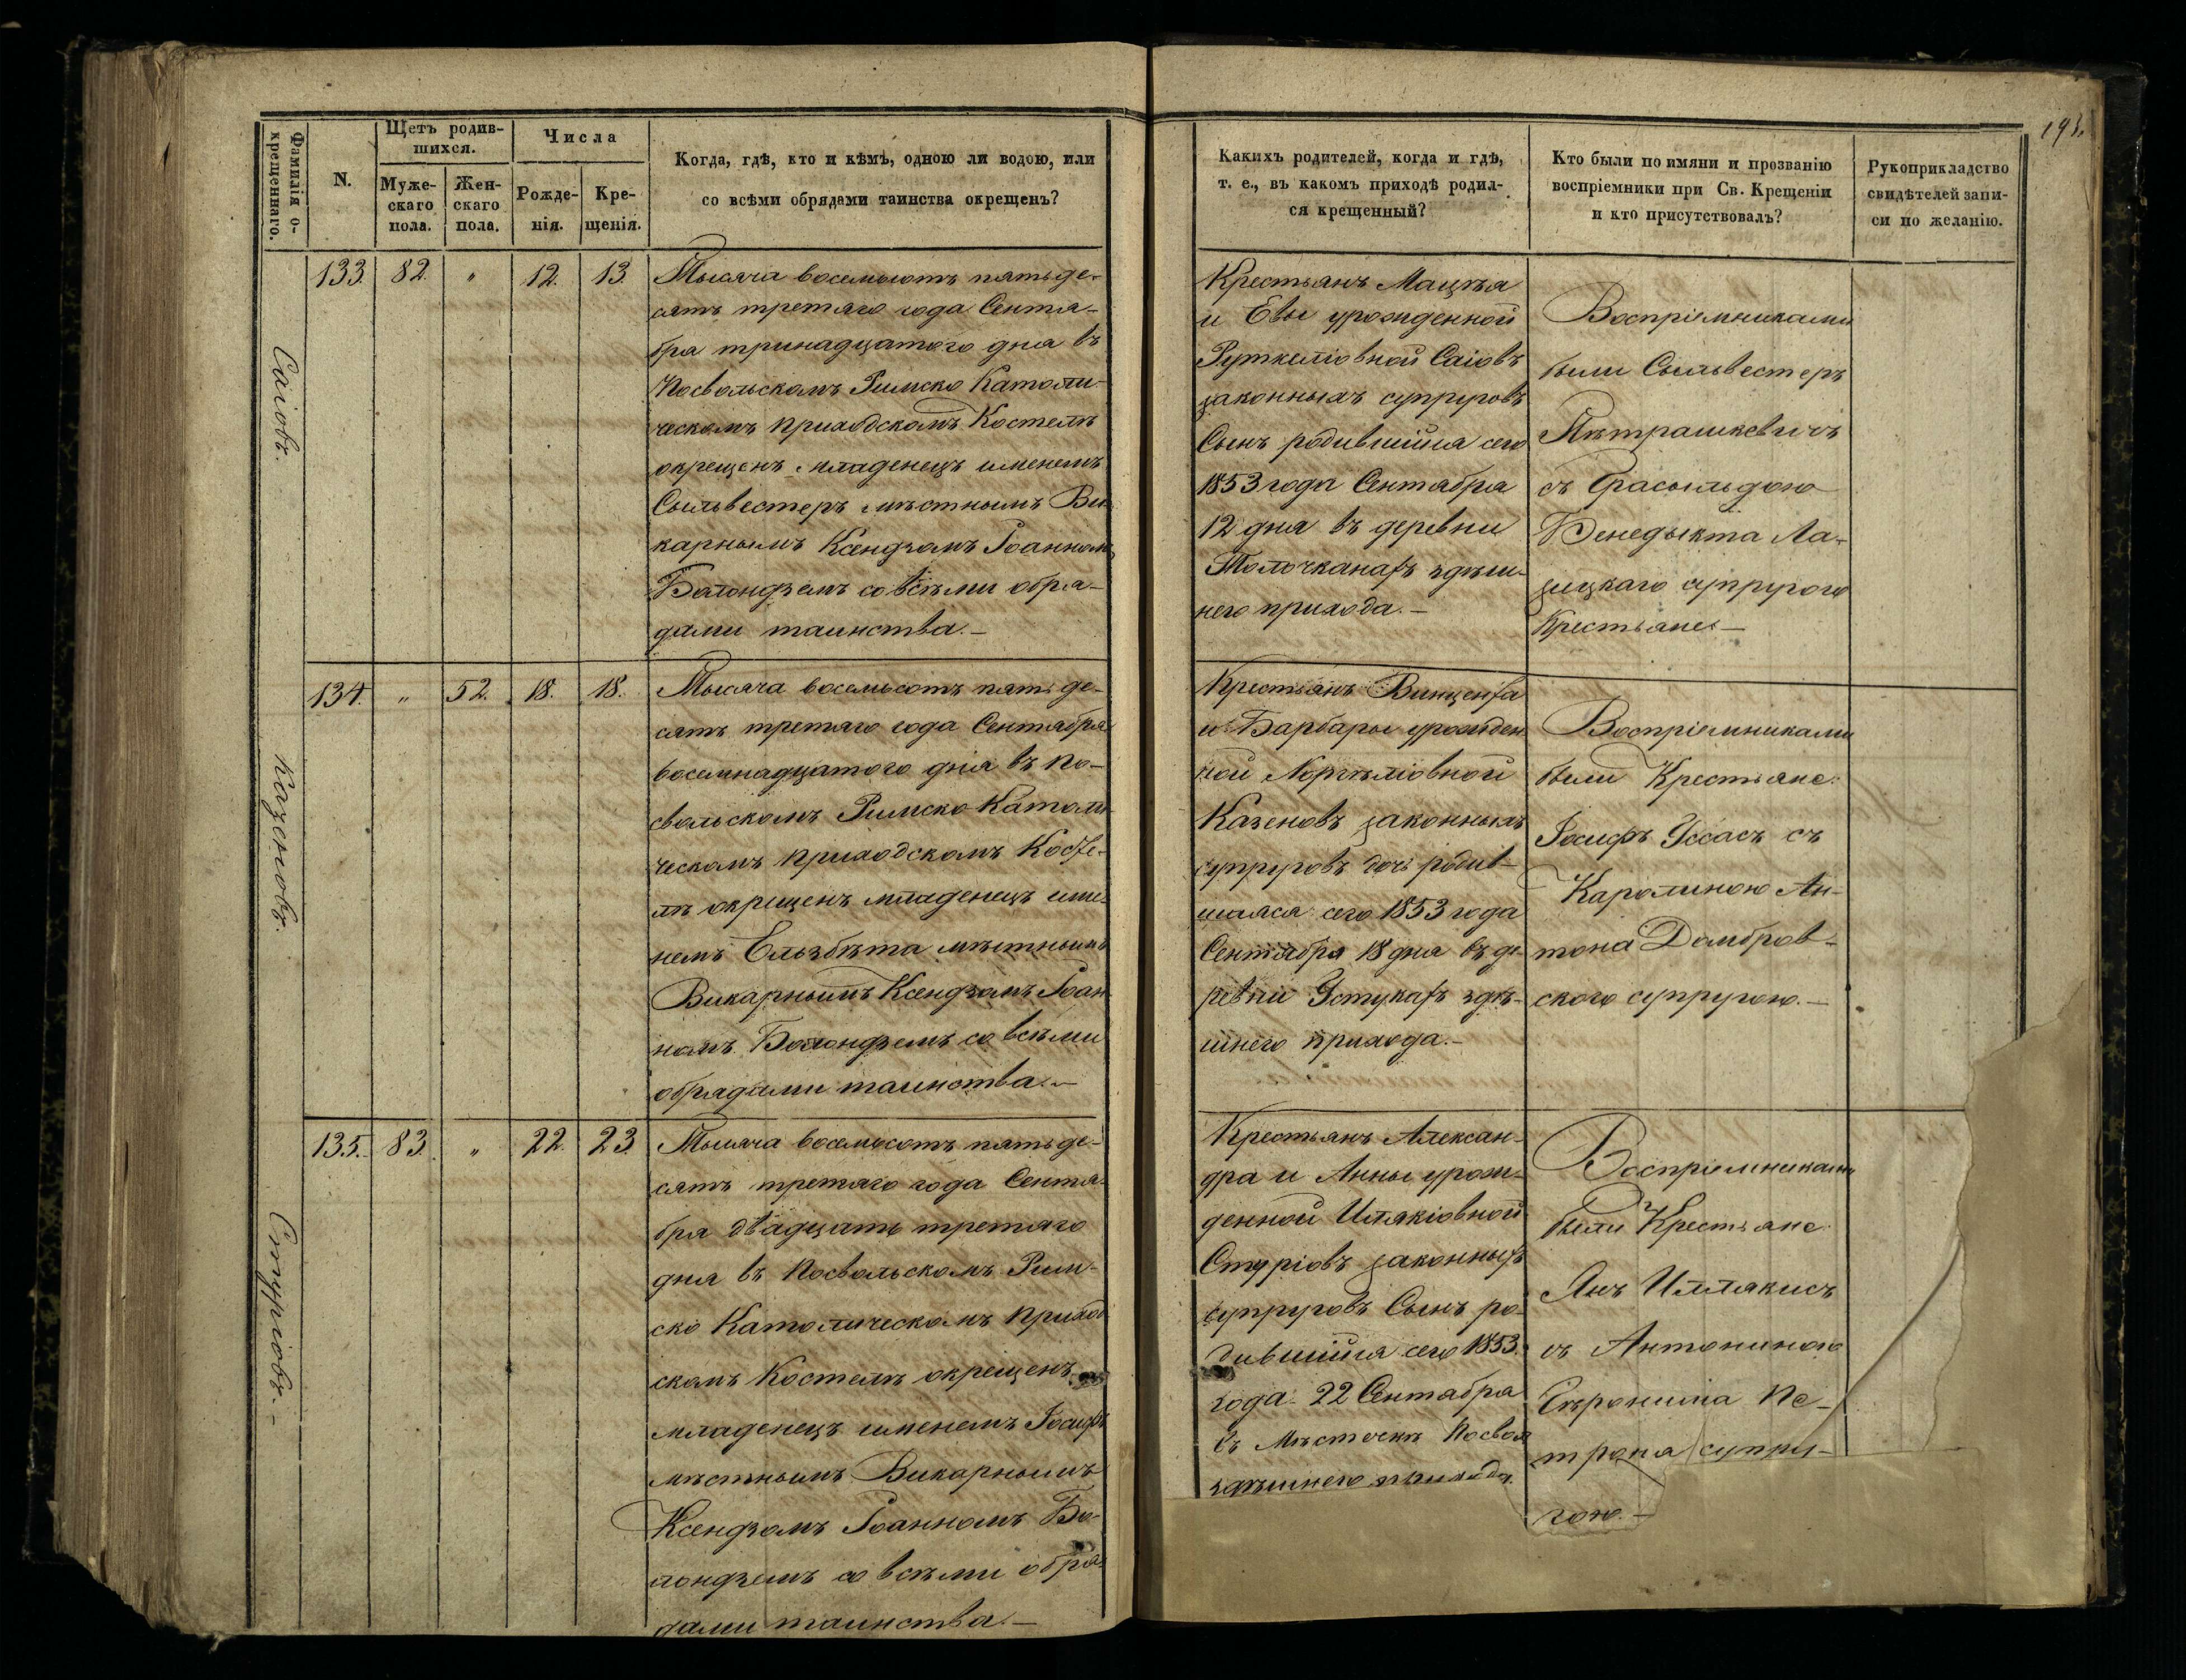 193.
Фамилія о-
крещеннаго.
N.
Щетъ родив-
шихся.
Муже-
скаго
пола.
Жен-
скаго
пола.
Числа
Рожде-
нія.
Кре-
щенія.
Когда, гдѣ, кто и кѣмъ, одною ли водою, или
со всѣми обрядами таинства окрещенъ?
Какихъ родителей, когда и гдѣ,
т. е., въ какомъ приходѣ родил-
ся крещенный?
Кто были по имяни и прозванію
воспріемники при Св. Крещеніи
и кто присутствовалъ?
Рукоприкладство
свидѣтелей запи-
си по желанію.
Саіовъ.
133. 82. " 12. 13.
Тысяча восемьсотъ пятьде-
сятъ третяго года Сентя-
бра тринадцатого дня въ
Посвольскомъ Римско Католи-
ческомъ приходскомъ Костелѣ
окрещенъ младенецъ именемъ
Сыльвестеръ мѣстнымъ Ви-
карнымъ Ксендзомъ Іоанномъ
Болондземъ со всѣми обря-
дами таинства.—
Крестьянъ Мацѣя
и Евы урожденной
Руткеліовной Саіовъ
законныхъ супруговъ
Сынъ родившійся сего
1853 года Сентября
12 дня въ деревни
Толочканахъ здѣш-
него прихода.—
Воспріемниками
были Сыльвестеръ
Пѣтрашкевичъ
съ Расольдою
Бенедыкта Ла-
зицкаго супругою
Крестьяне—
Казеновъ.
134. " 52. 18. 18.
Тысяча восемьсотъ пятьде-
сятъ третяго года Сентября
восемнадцатого дня въ По-
свольскомъ Римско-Католи-
ческомъ приходскомъ Косте-
лѣ окрещенъ младенецъ име-
немъ Ельзбѣта мѣстнымъ
Викарнымъ Ксендзомъ Іоан-
номъ Болондземъ со всѣми
обрядами таинства.—
Крестьянъ Винцента
и Барбары урожден
ной Норгѣліовной
Казеновъ законныхъ
супруговъ дочь родив-
шаяся сего 1853 года
Сентября 18 дня въ де-
ревни Устукахъ здѣ-
шнего прихода.—
Воспріемниками
были Крестьяне:
Іосифъ Уссасъ съ
Каролиною Ан-
тона Домбров-
ского супругою.—
Стуріовъ.—
135. 83. " 22. 23.
Тысяча восемьсотъ пятьде-
сятъ третяго года Сентя-
бря двадцать третяго
дня въ Посвольскомъ Рим-
ско Католическомъ Приход
скомъ Костелѣ окрещенъ
младенецъ именемъ Іосифъ
мѣстнымъ Викарнымъ
Ксендзомъ Іоанномъ Бо-
лондземъ со всѣми обря-
дами таинства.—
Крестьянъ Алексан-
дра и Анны урож-
денной Илякіовной
Стуріовъ законныхъ
супруговъ Сынъ ро-
дившійся сего 1853.
года 22 Сентября
въ Мѣстечкѣ Посвол
здѣшнего прихода.
Воспріемниками
были Крестьяне:
Янъ Иллякисъ
съ Антониною
Гѣронима Пе-
трона супру-
гою.—